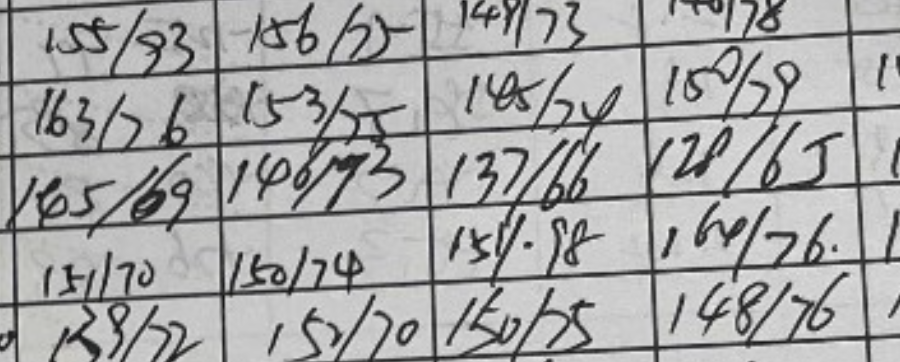 155/93 156/75 149/73
163/76 153/75 145/74 150/79
165/69 146/73 137/66 128/65
151/70 150/74 151/.98 160/76.
139/72 152/70 150/75 148/76